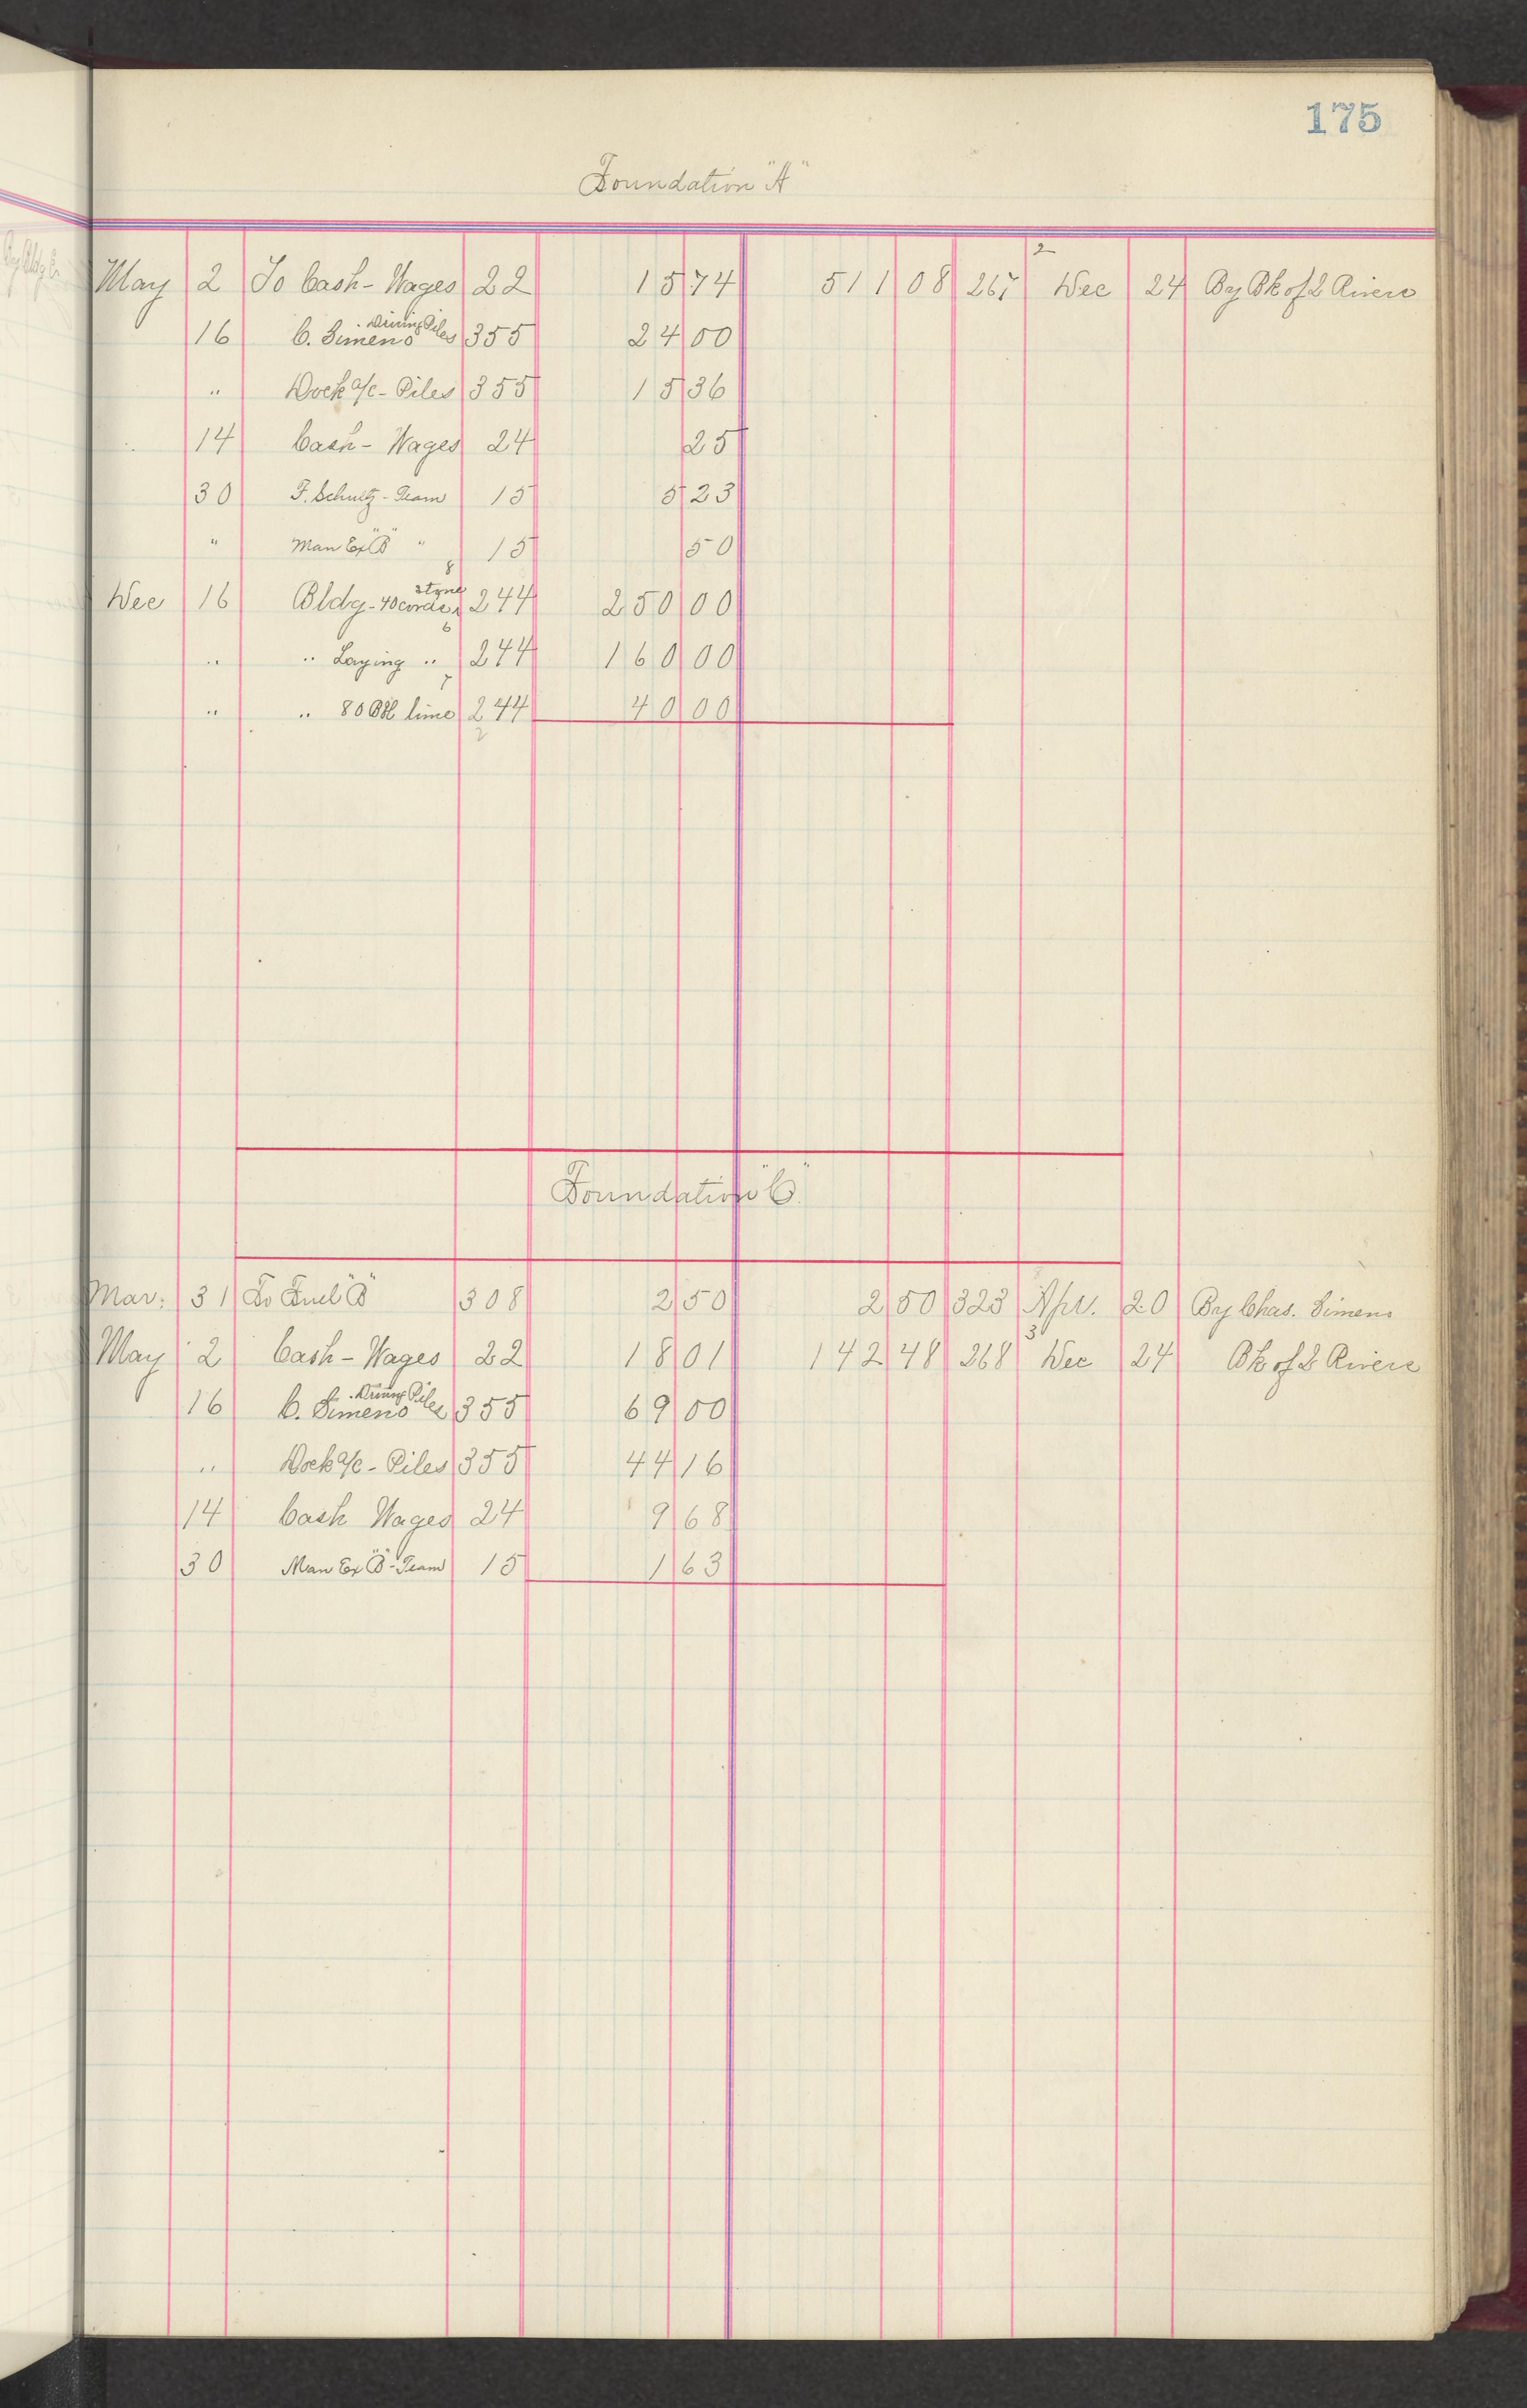 175
Foundation "A"
May 2 To Cash - Wages 22 15 74 511 08 267 2 Dec 24 By Bk of 2 Rivers
16 C. Simens Driving Piles 355 24 00
" Dock a/c - Piles 355 15 36
14 Cash - Wages 24 25
30 F. Schultz - Team 15 5 23
" Man Ex "B" " 15 50
Dec 16 Bldg - 40 cords stone 8 244 250 00
" " Laying " 6 244 160 00
" " 80 Bbl lime 7 244 40 00
2
Foundation "C"
Mar. 31 To Fuel "B" 308 2 50 2 50 323 Apr. 20 By Chas. Simens
May 2 Cash - Wages 22 18 01 142 48 268 3 Dec 24 Bk of 2 Rivers
16 C. Simens Driving Piles 355 69 00
" Dock a/c - Piles 355 44 16
14 Cash Wages 24 9 68
30 Man Ex "B" - Team 15 1 63